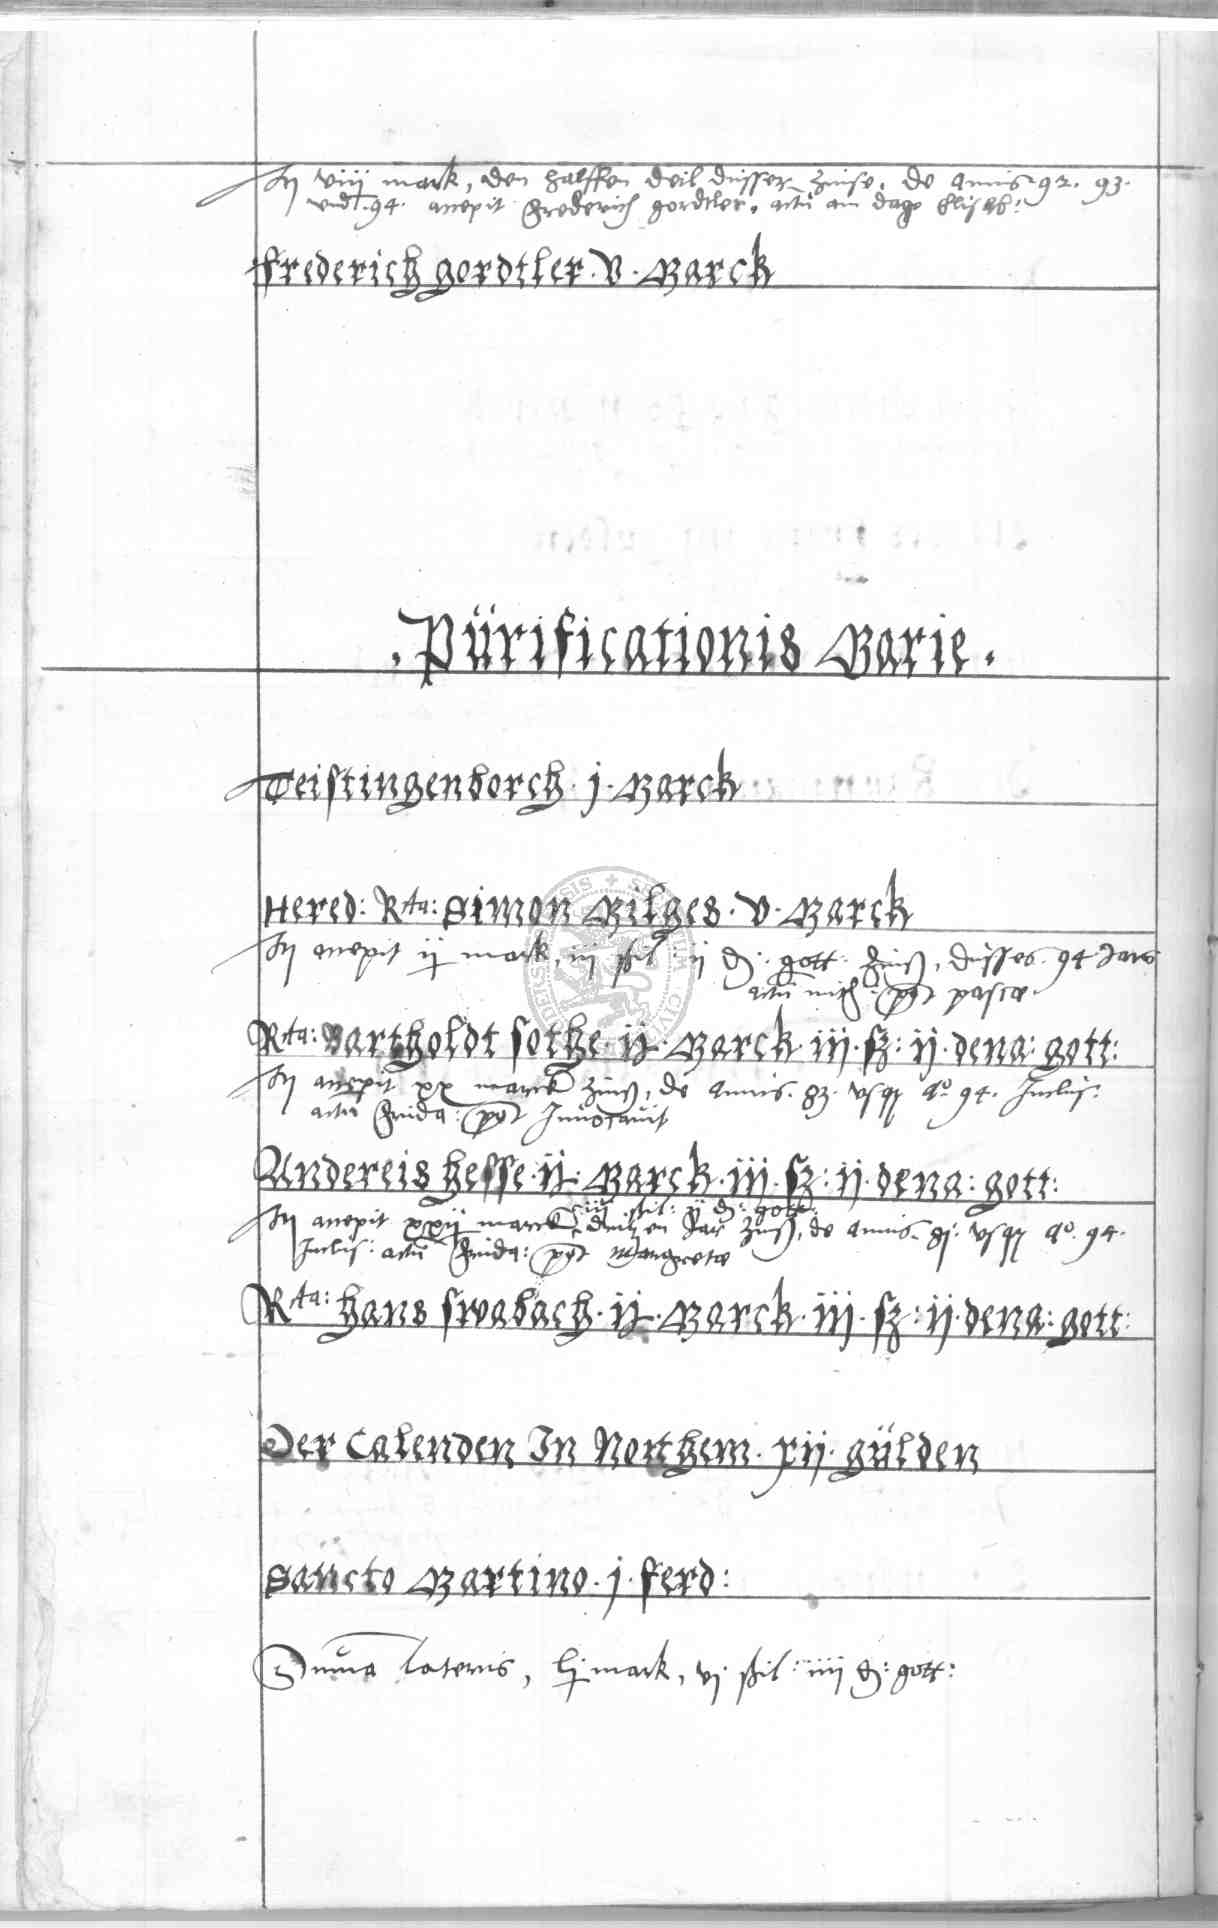 viij mark, den halffen deil dusser zinse, de annis 92. 93.
vnd .94. accepit Frederich gordtler, actu am dage
Frederich gordtler . v . Marck
. Pürificationis Marie .
Teistingenborch . j . Marck
Hered: Rta: Simon Milges . v . Marck
accepit ij mark, iij ßil: ij d: gott. zinß, dusses 94 Jars
actu post pasce
Rta: Bartholdt sothe . ij . Marck . iij . sz: ij . dena: gott:
accepit xx marck zinß, de annis . 83 . vsq; Ao 94. Inclus:
actu post Inuocauit
Andereis hesse . ij . Marck . iij . sz: ij . dena: gott:
iij ßil: ij d: gott:
accepit marck zinß, de annis . vsq; Ao. 94.
Inclus: actu post Margrete
Rta: hans swabach . ij . Marck . iij . sz: ij . dena: gott:
Der Calenden In Northem . xij . gülden
Sancto Martino . j . ferd:
Suma lateris, mark, vj ßil: iiij d: gott: